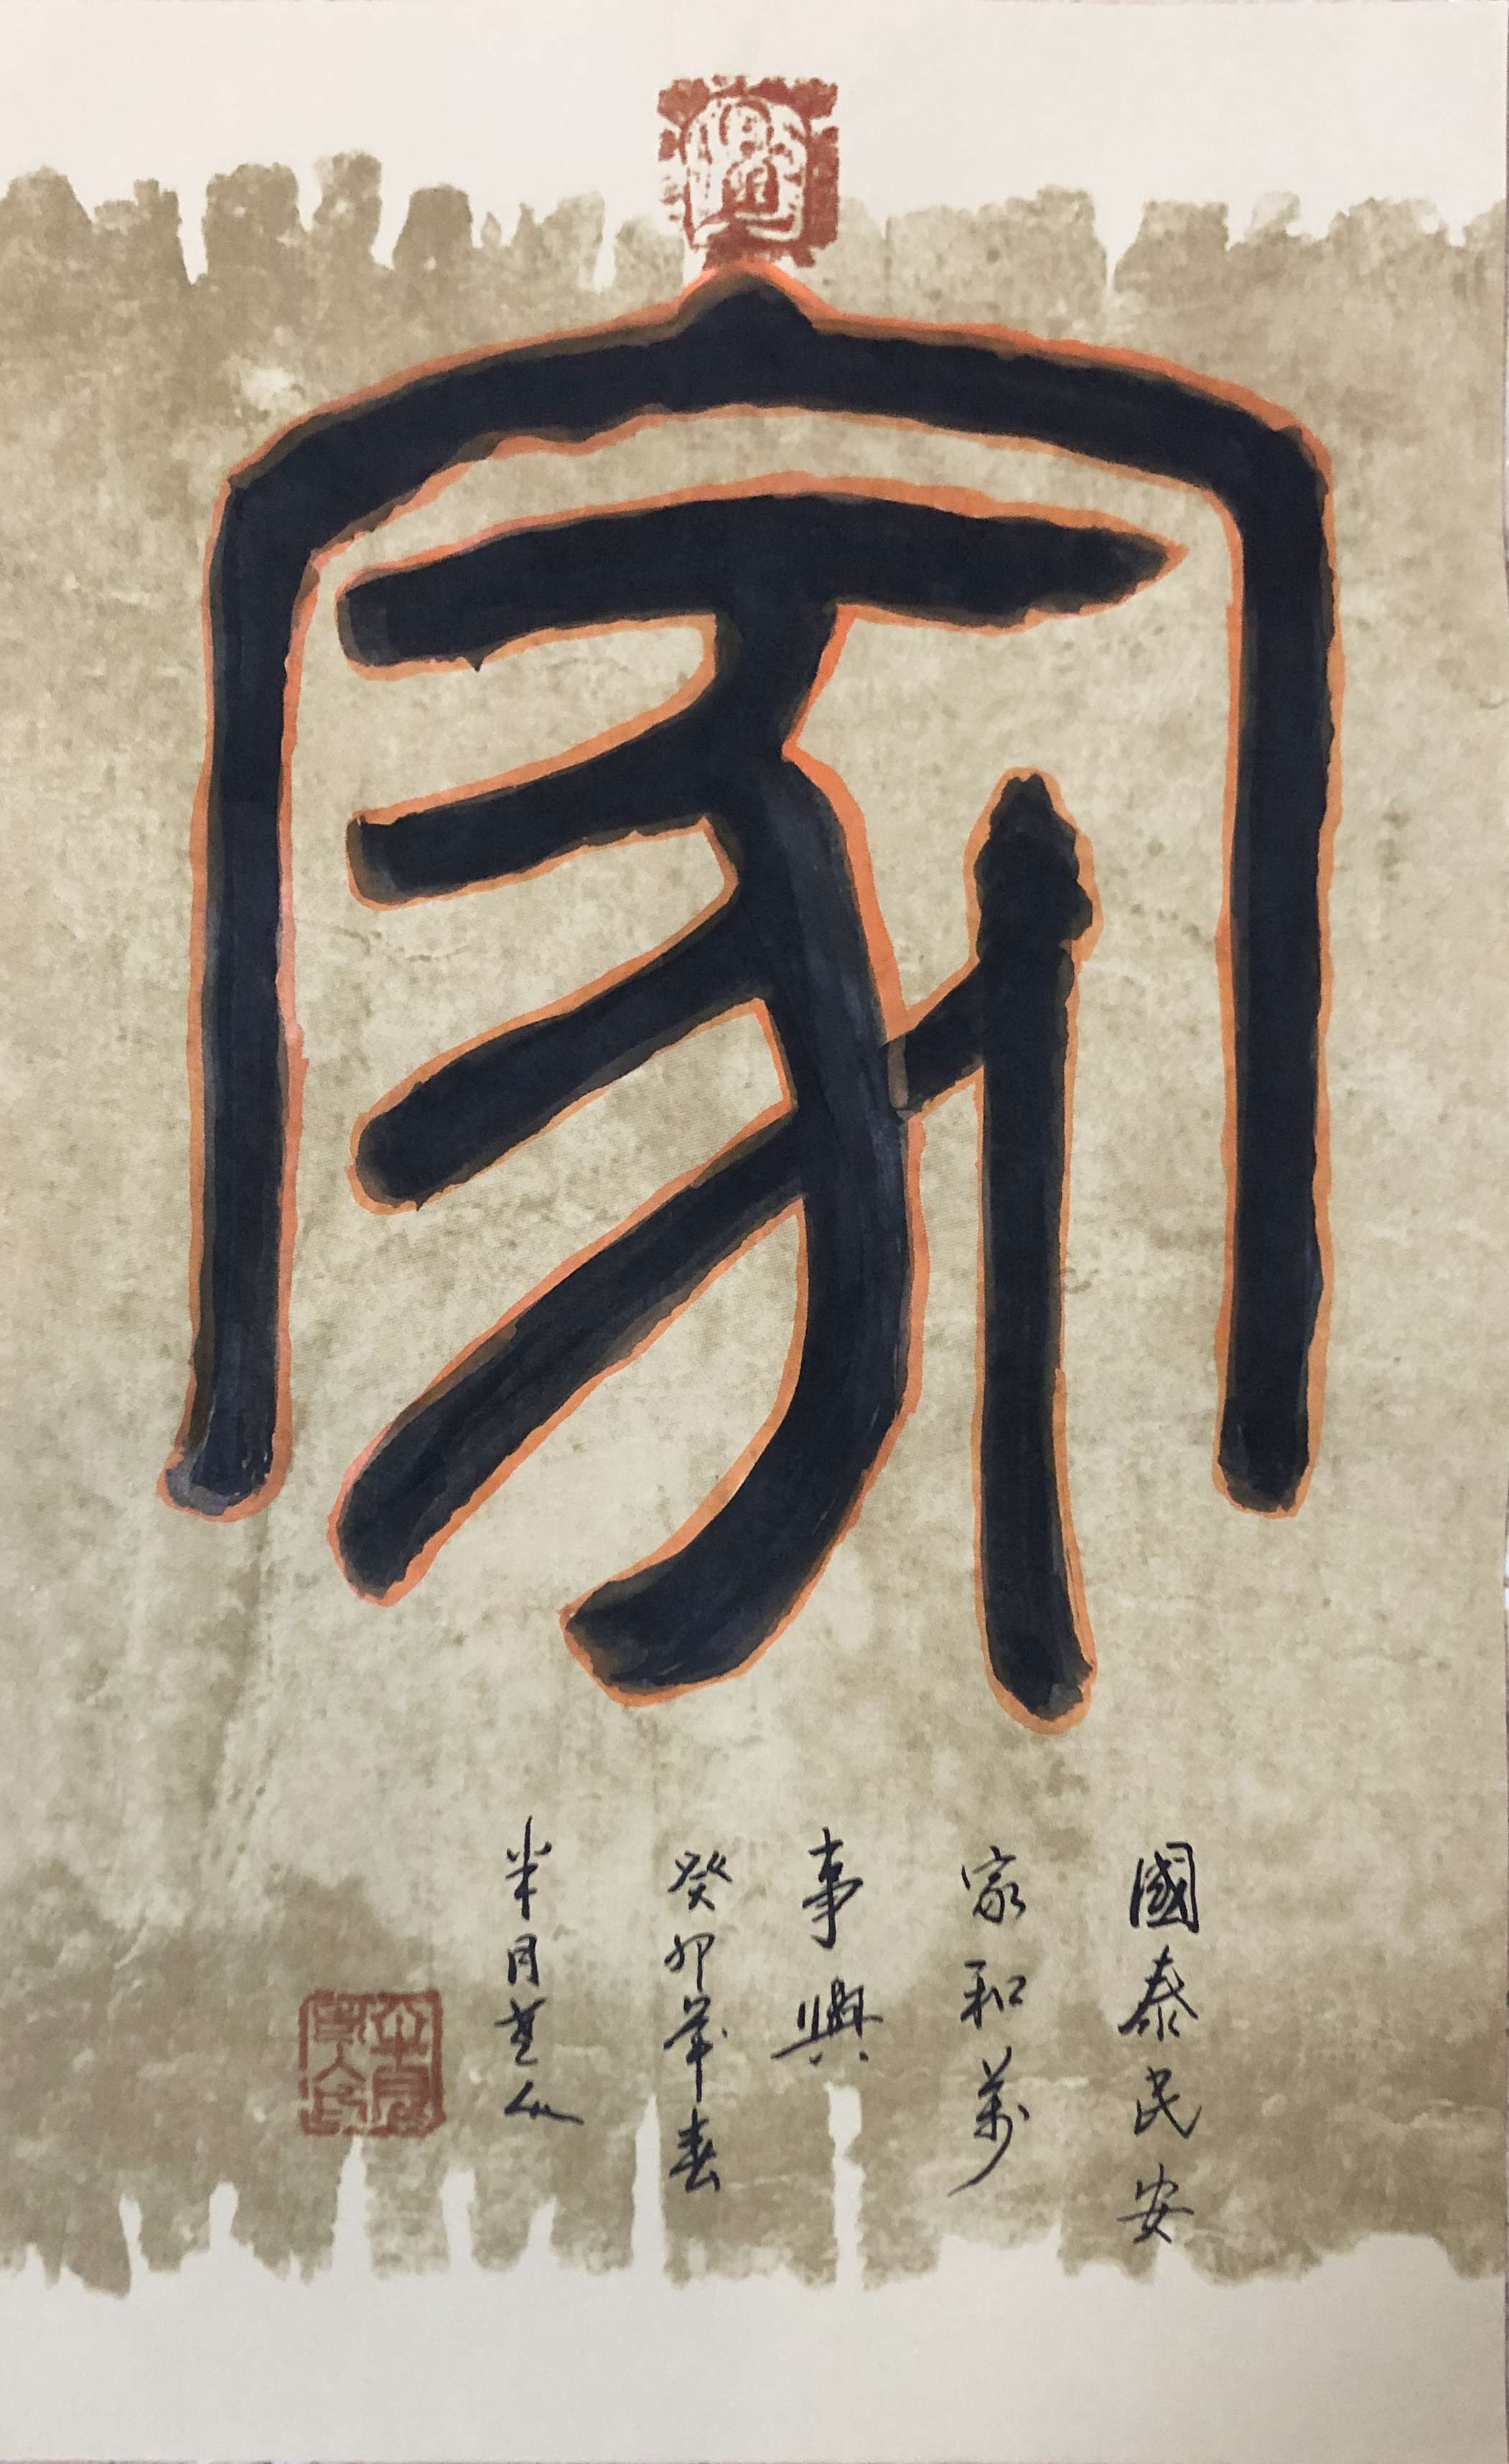 家
國泰民安
家和萬
事興
癸卯年春
半月